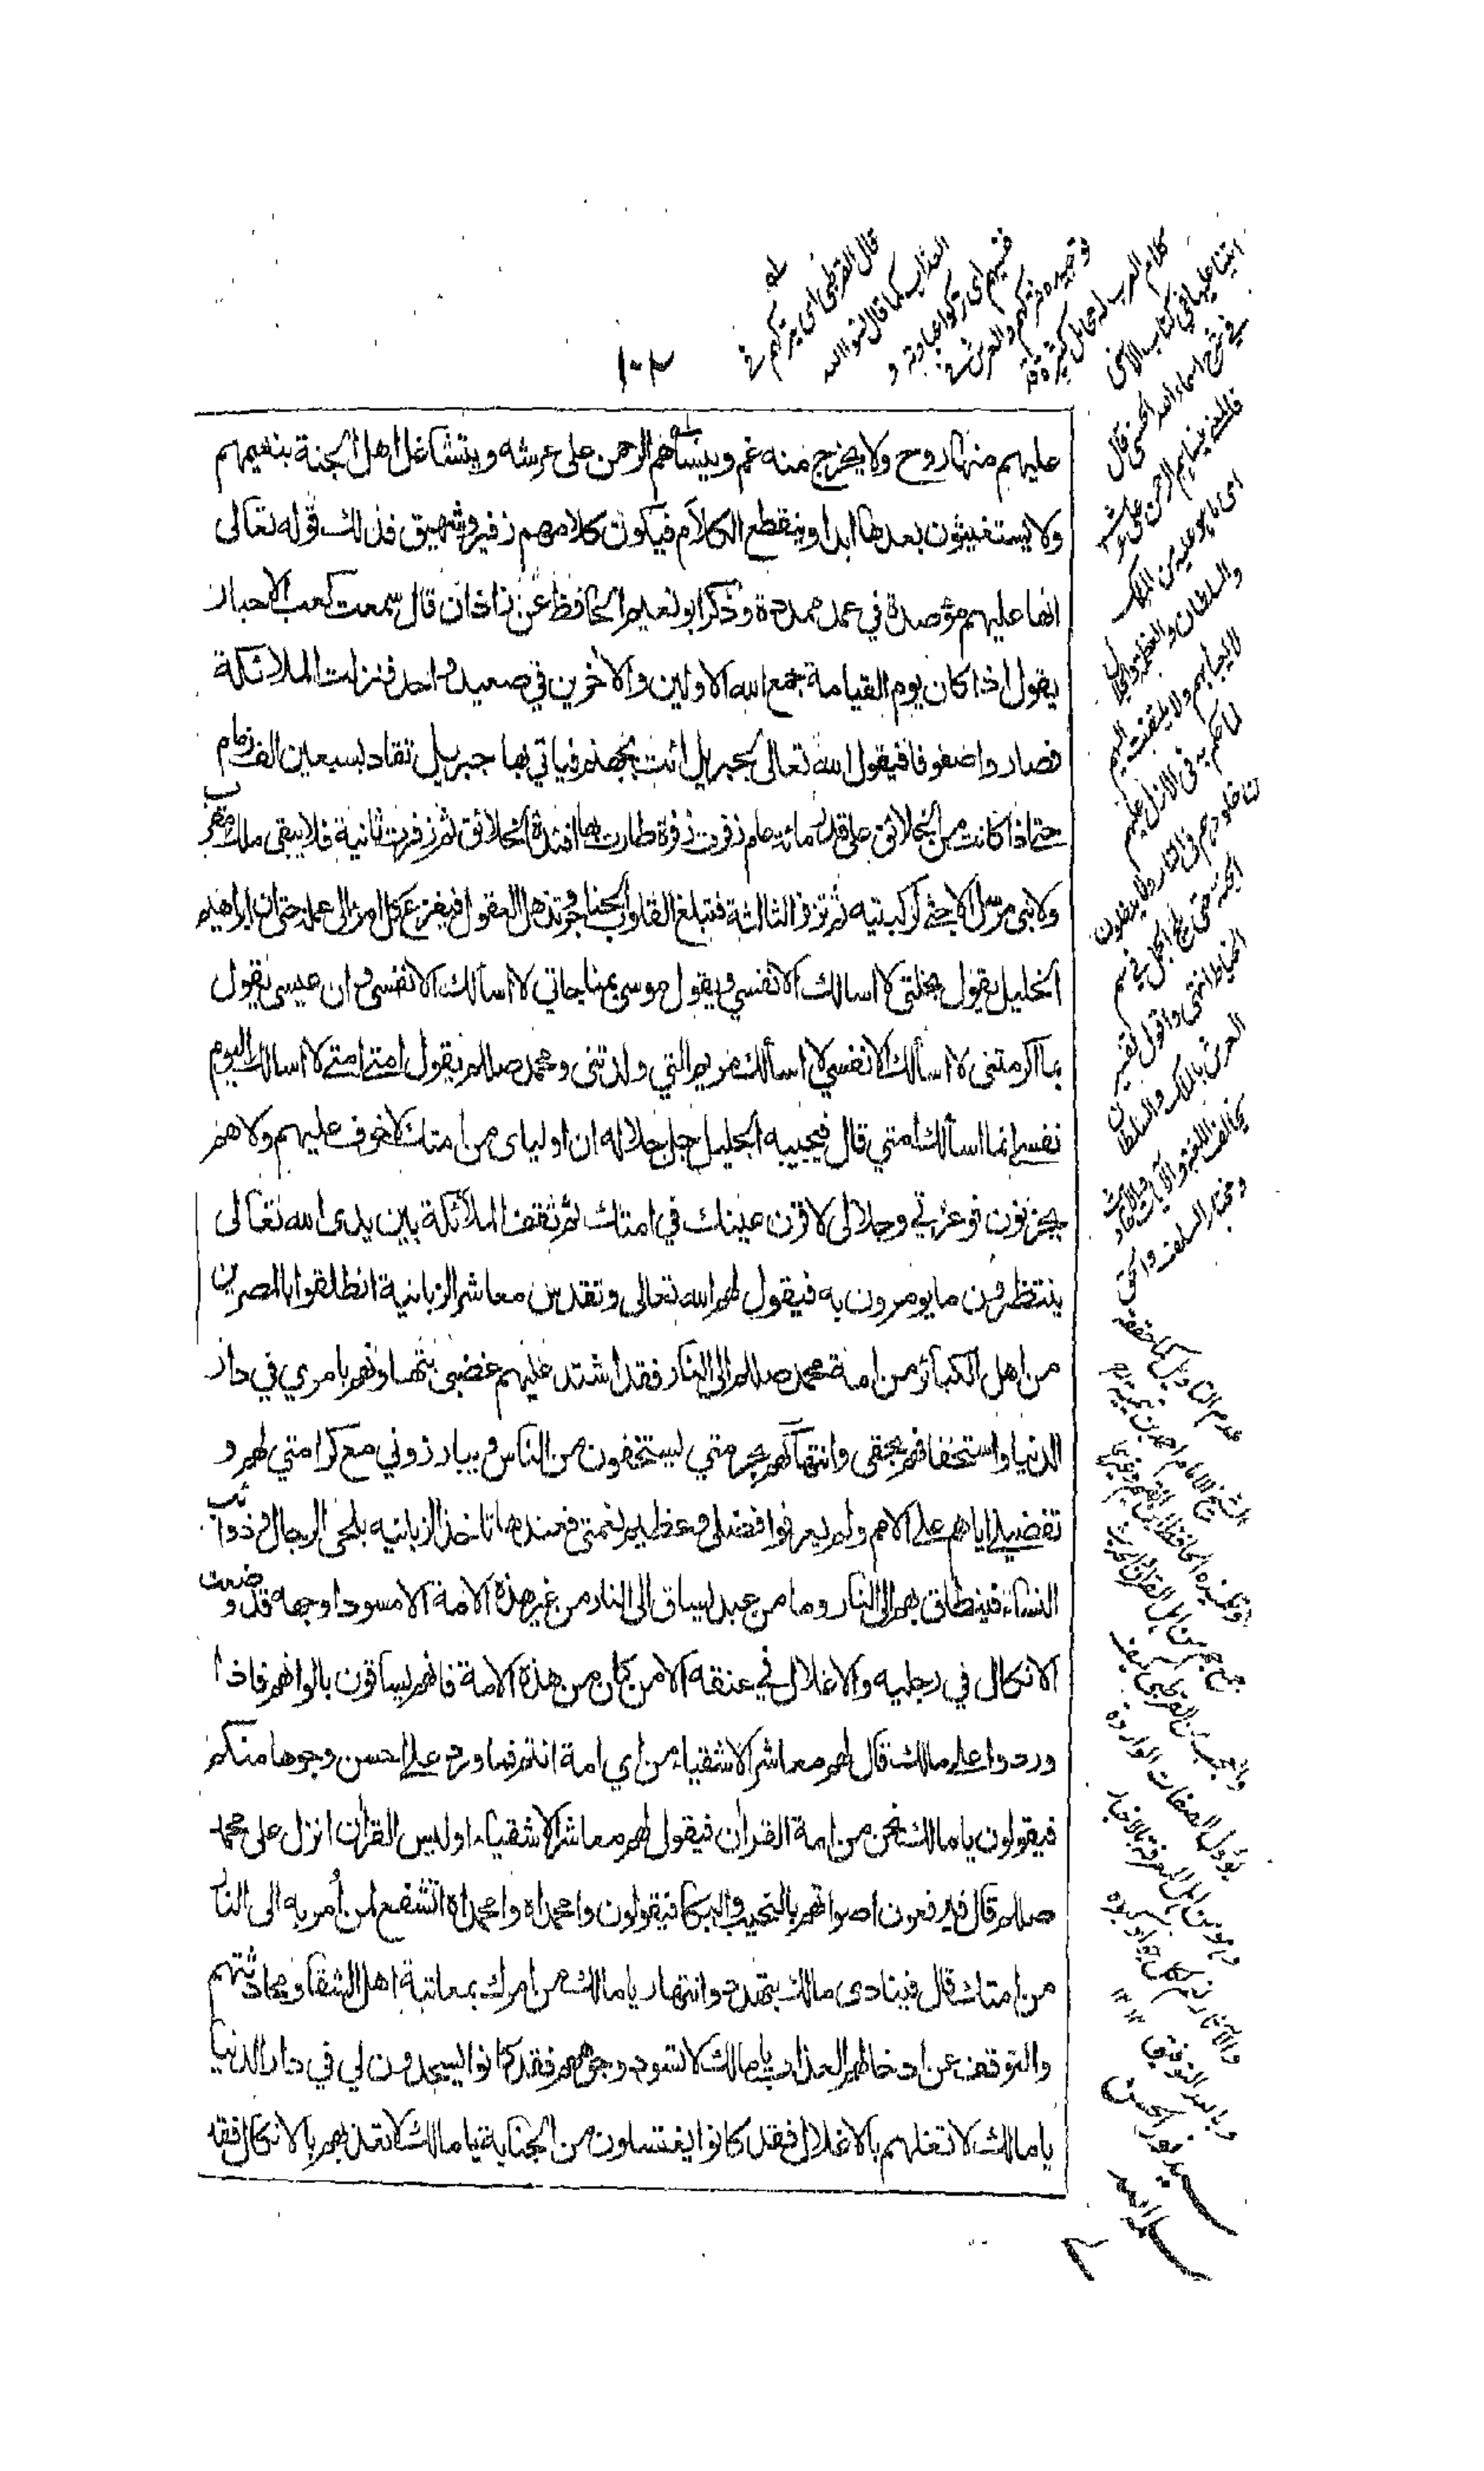 ١٠٢
عليهم منها روح ولا يخرج منه غم وينساهم الرحمن على عرشه ويتشاغل اهل الجنة بنعيمهم
ولا يستغيثون بعدها ابدا وينقطع الكلام فيكون كلامهم زفير وشهيق فذلك قوله تعالى
انها عليهم مؤصدة في عمد ممددة وذكر ابو نعيم الحافظ عن زاذان قال سمعت كعب الاحبار
يقول اذا كان يوم القيامة جمع الله الاولين والآخرين في صعيد واحد فنزلت الملائكة
فصاروا صفوفا فيقول الله تعالى لجبريل ائت بجهنم فياتي بها جبريل تقاد بسبعين الف زمام
حتى اذا كانت من الخلائق على قدر مائة عام زفرت زفرة طارت بها افئدة الخلائق ثم زفرت ثانية فلا يبقى ملك مقرب
ولا نبي مرسل الا جثى لركبتيه ثم تزفر الثالثة فتبلغ القلوب الحناجر وتذهل العقول فيفزع كل امرئ الى عمله حتى ان ابراهيم
الخليل يقول بخلتي لا اسالك الا نفسي ويقول موسى بمناجاتي لا اسالك الا نفسي وان عيسى يقول
بما اكرمتنى لا اسألك الا نفسي لا اسألك مريم التي ولدتنى ومحمد صللم يقول امتي امتي لا اسالك اليوم
نفسي انما اسألك امتي قال فيجيبه الجليل جل جلاله ان اوليائى من امتك لا خوف عليهم ولا هم
يحزنون فوعزتي وجلالى لا قرن عينك في امتك ثم تقف الملائكة بين يدى الله تعالى
ينتظرون ما يومرون به فيقول لهم الله تعالى وتقدس معاشر الزبانية انطلقوا بالمصرين
من اهل الكبائر من امة محمد صللم الى النار فقد اشتد عليهم غضبى بتهاونهم بامري في دار
الدنيا واستخفافهم بحقى وانتهاكهم حرمتي يستخفون من الناس ويبارزوني مع كرامتي لهم و
تفضيلي اياهم على الامم ولم يعرفوا فضلى وعظيم نعمتى فعندها تاخذ الزبانيه بلحى الرجال وذوائب
النساء فينطلق بهم الى النار وما من عبد يساق الى النار من غير هذه الامة الا مسودا وجهه قد وضعت
الانكال في رجليه والاغلال في عنقه الا من كان من هذه الامة فانهم يساقون بالوانهم فاذا
وردوا على مالك قال لهم معاشر الاشقياء من اي امة انتم فما ورد علي احسن وجوها منكم
فيقولون يا مالك نحن من امة القرآن فيقول لهم معاشر الاشقياء اوليس القرآن انزل على محمد
صللم قال فيرفعون اصواتهم بالنحيب والبكا فيقولون وامحمداه وامحمداه اشفع لمن أمر به الى النار
من امتك قال فينادى مالك بتهدد وانتهار يا مالك من امرك بمعاتبة اهل الشقا ومحادثتهم
والتوقف عن ادخالهم العذاب يا مالك لا تسود وجوههم فقد كانوا يسجدون لي في دار الدنيا
يا مالك لا تغلهم بالاغلال فقد كانوا يغتسلون من الجنابة يا مالك لا تعذبهم بالانكال فقد
قال القرطبى اى يتركهم في
العذاب كما قال نسوا الله
فنسيهم اى تركوا عبادته و
توحيده فتركهم والعرش في
كلام العرب له محامل كثيرة قد
اتينا عليها فى كتاب الاسنى
في شرح اسماء الله الحسنى قال
فالمعنى ينساهم الرحمن على عرشه
اى بما هو عليه من الملك
والسلطان والعظمة والجلال
لا يعبأ بهم ولا يلتفت اليهم
لما حكم به فى الازل عليهم
الجنة حتى يلج الجمل في سم
الخياط انتهى واقول تفسير
العرش بالملك والسلطان